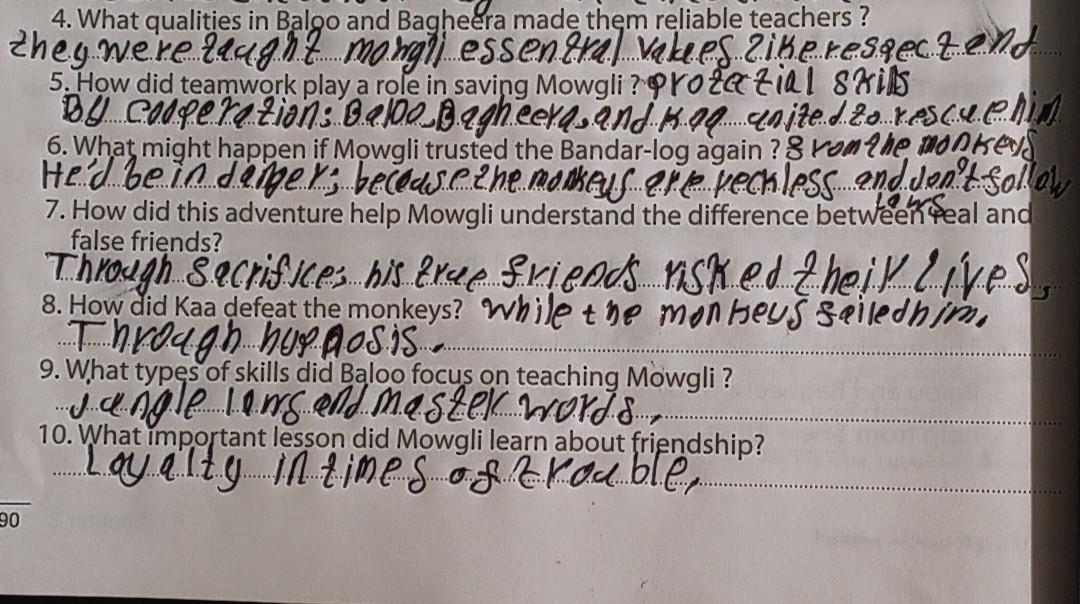 4. What qualities in Baloo and Bagheera made them reliable teachers ?
they were taught mowgli essential values like respect and
5. How did teamwork play a role in saving Mowgli ? protectial skills
By cooperation: Baloo, Bagheera, and Kaa united to rescue him
6. What might happen if Mowgli trusted the Bandar-log again ? from the monkeys
He'd be in danger; because the monkeys are reckless and don't follow
laws
7. How did this adventure help Mowgli understand the difference between real and
false friends?
Through sacrifice; his true friends risked their lives,
8. How did Kaa defeat the monkeys? while the monkeys failed him.
Through hupnosis.
9. What types of skills did Baloo focus on teaching Mowgli ?
Jungle laws and master words.
10. What important lesson did Mowgli learn about friendship?
Loyalty in times of trouble,
90